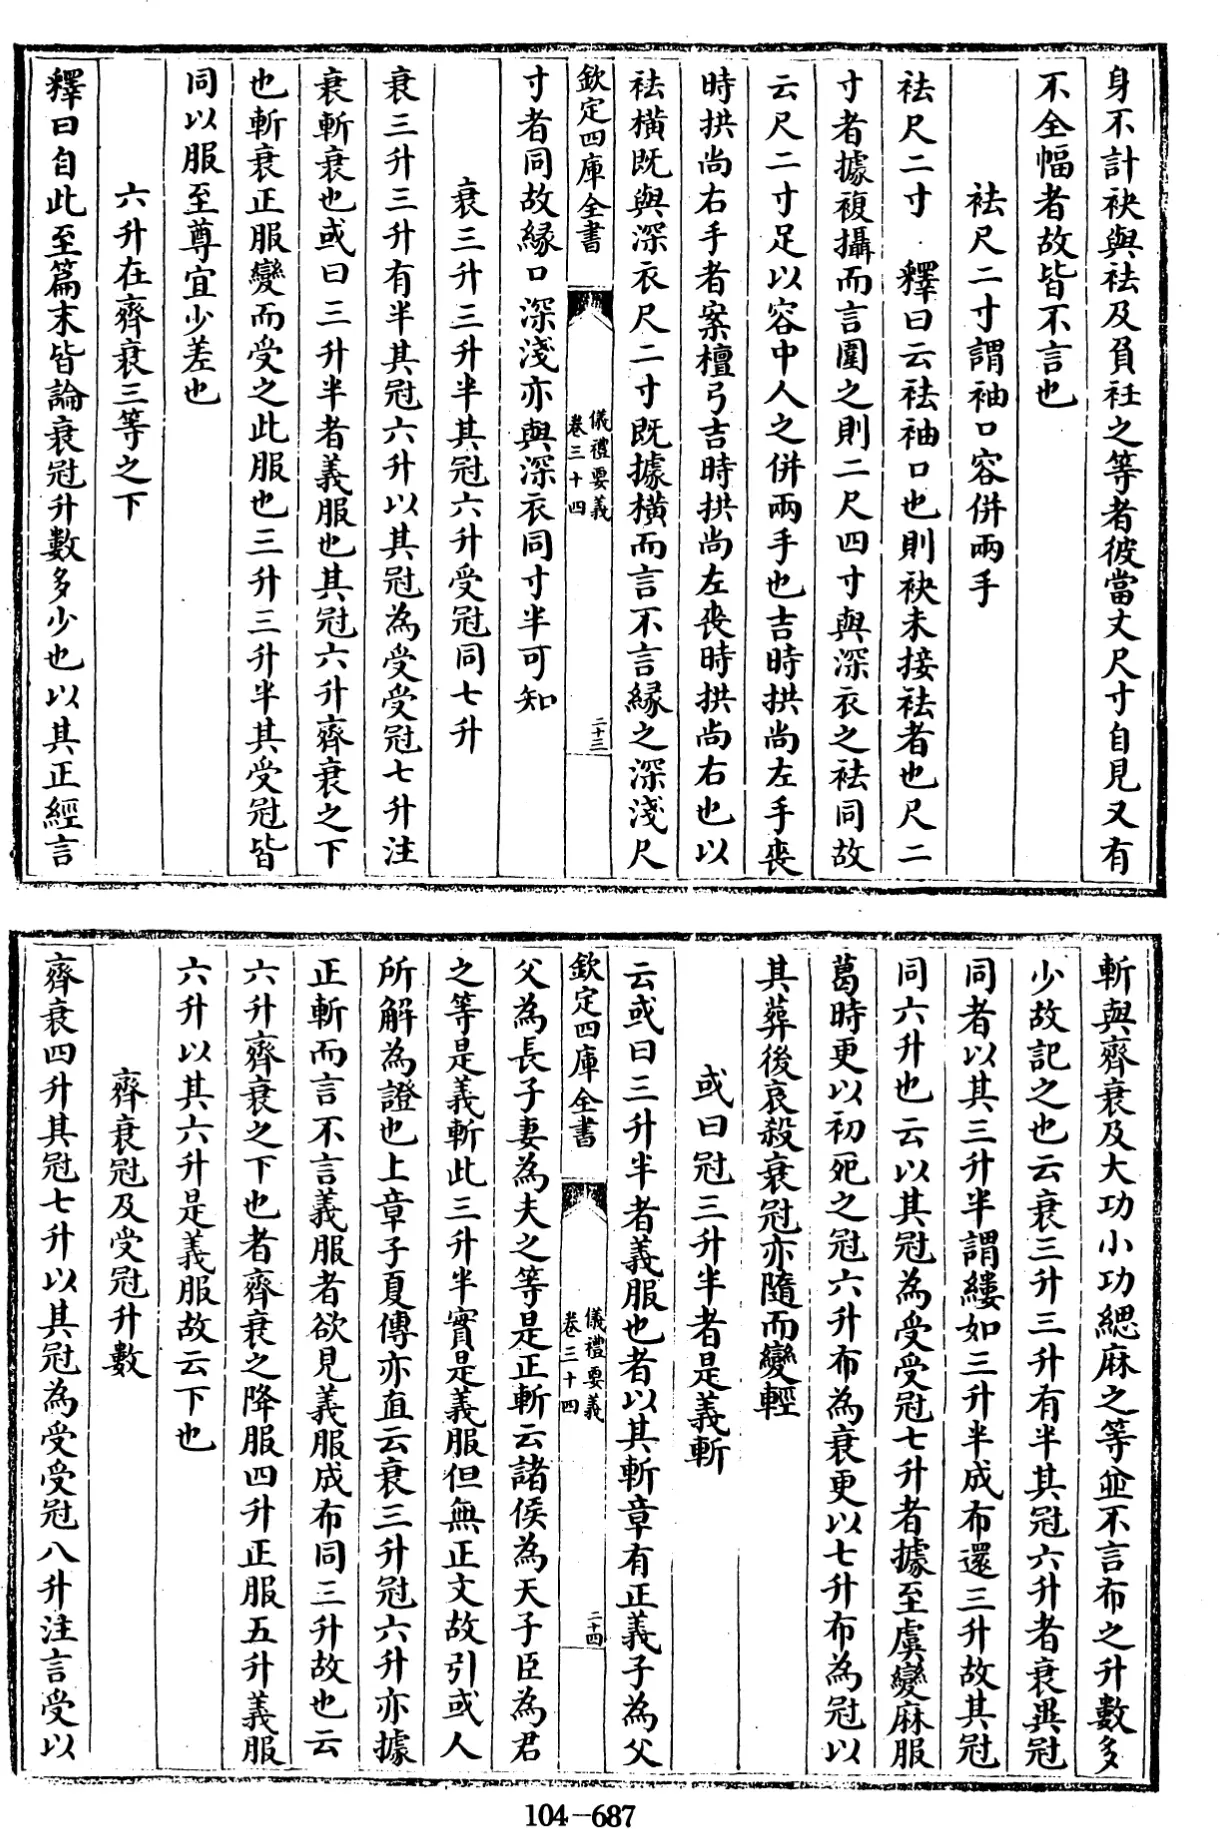 身不計袂與祛及負衽之等者彼當丈尺寸自見又有
不全幅者故皆不言也
祛尺二寸謂袖口容併兩手
祛尺二寸 釋曰云祛袖口也則袂末接祛者也尺二
寸者據複攝而言圍之則二尺四寸與深衣之祛同故
云尺二寸足以容中人之併兩手也吉時拱尚左手喪
時拱尚右手者案檀弓吉時拱尚左喪時拱尚右也以
祛橫既與深衣尺二寸既據橫而言不言緣之深淺尺
欽定四庫全書
儀禮要義
卷三十四
二十三
寸者同故緣口深淺亦與深衣同寸半可知
衰三升三升半其冠六升受冠同七升
衰三升三升有半其冠六升以其冠為受受冠七升注
衰斬衰也或曰三升半者義服也其冠六升齊衰之下
也斬衰正服變而受之此服也三升三升半其受冠皆
同以服至尊宜少差也
六升在齊衰三等之下
釋曰自此至篇末皆論衰冠升數多少也以其正經言
斬與齊衰及大功小功緦麻之等並不言布之升數多
少故記之也云衰三升三升有半其冠六升者衰異冠
同者以其三升半謂縷如三升半成布還三升故其冠
同六升也云以其冠為受受冠七升者據至虞變麻服
葛時更以初死之冠六升布為衰更以七升布為冠以
其葬後哀殺衰冠亦隨而變輕
或曰冠三升半者是義斬
云或曰三升半者義服也者以其斬章有正義子為父
欽定四庫全書
儀禮要義
卷三十四
二十四
父為長子妻為夫之等是正斬云諸侯為天子臣為君
之等是義斬此三升半實是義服但無正文故引或人
所解為證也上章子夏傳亦直云衰三升冠六升亦據
正斬而言不言義服者欲見義服成布同三升故也云
六升齊衰之下也者齊衰之降服四升正服五升義服
六升以其六升是義服故云下也
齊衰冠及受冠升數
齊衰四升其冠七升以其冠為受受冠八升注言受以
104-687